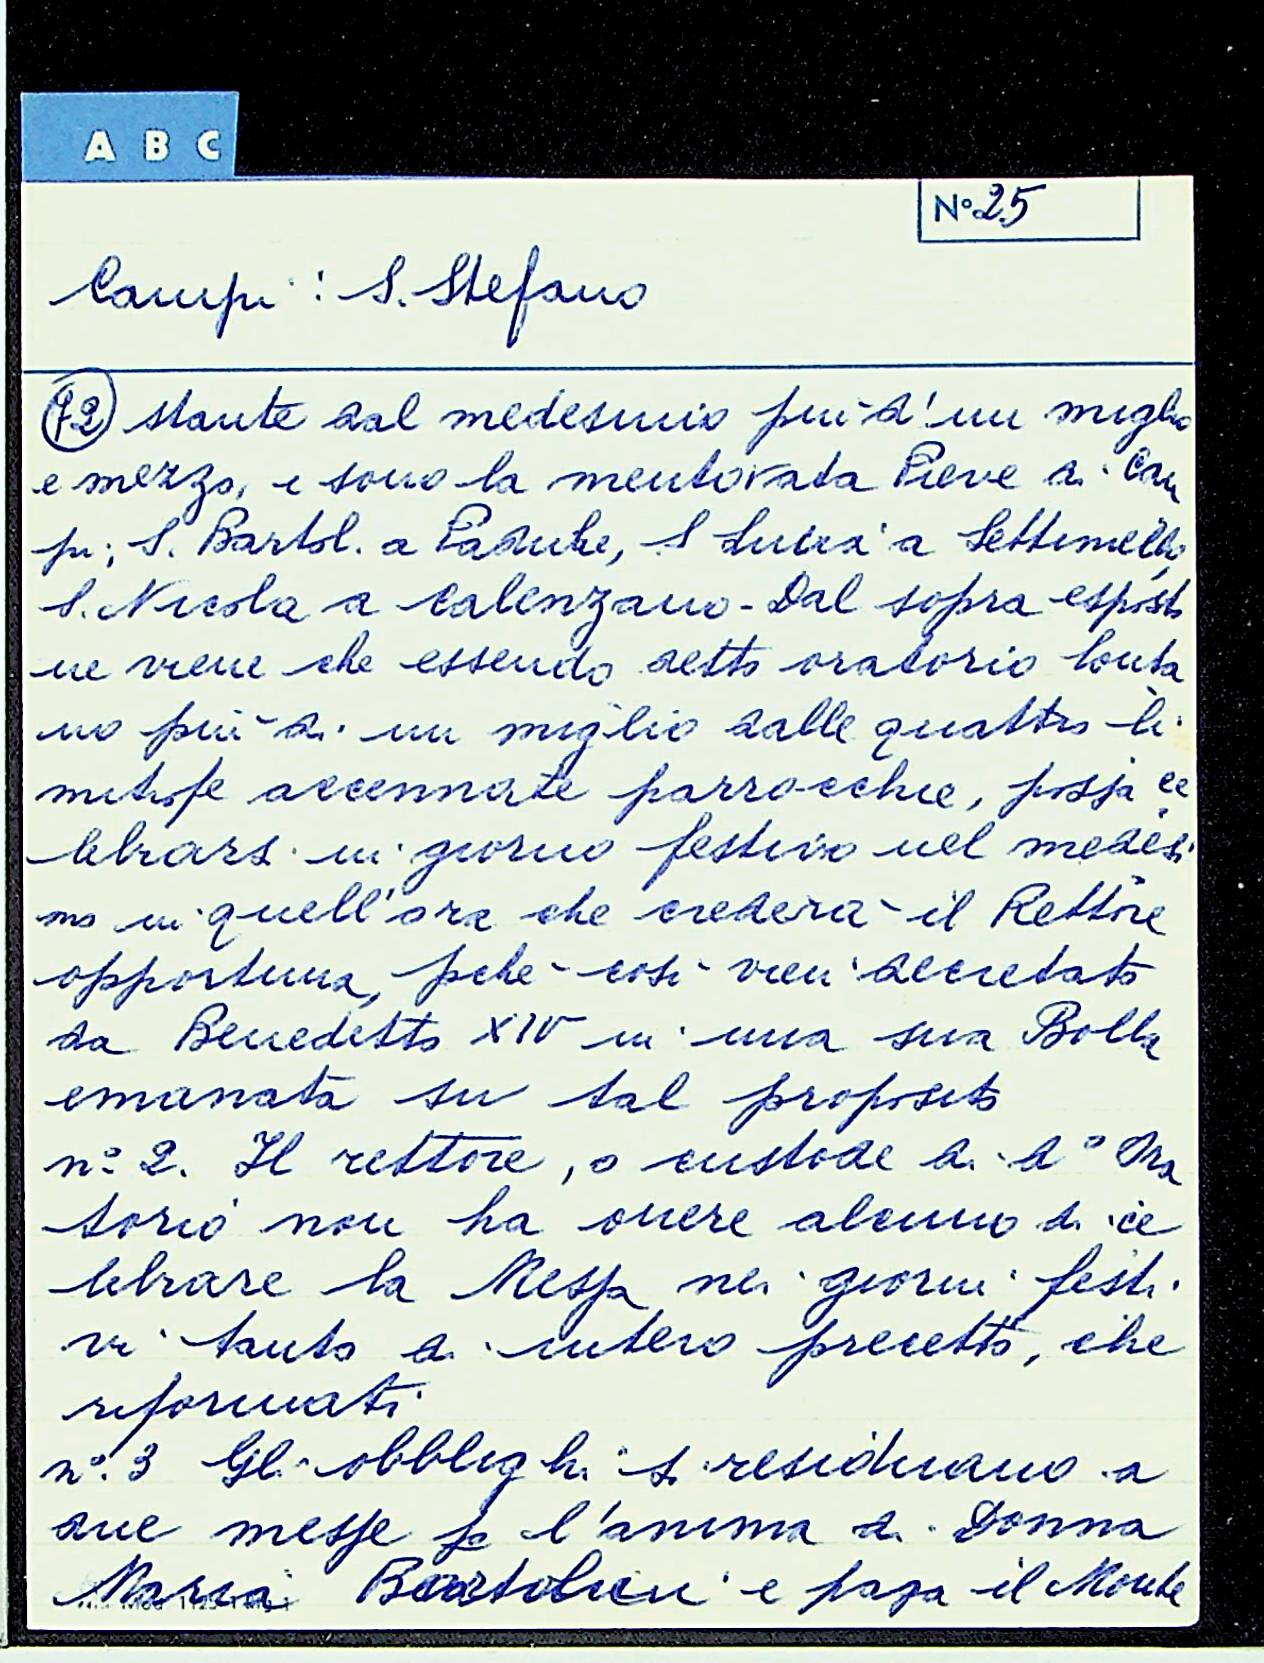 A B C
N° 25
Campi: S. Stefano
72 stante dal medesimo più d'un miglio
e mezzo, e sono la mentovata Pieve di Cam
pi; S. Bartol. a Padule, S Lucia a Settimello,
S. Nicola a Calenzano - Dal sopra esposto
ne viene che essendo detto oratorio lonta
no più di un miglio dalle quattro li
mitrofe accennate parrocchie, possa ce
lebrarsi in giorno festivo nel medesi
mo in quell'ora che crederà il Rettore
opportuna, pche così vien decretato
da Benedetto XIV in una sua Bolla
emanata su tal proposito
n° 2. Il rettore, o custode di d° Ora
torio non ha onere alcuno di ce
lebrare la Messa nei giorni festi
vi tanto di intero precetto, che
riformati
n°. 3 Gli obblighi si residuano a
due messe p l'anima di Donna
Maria Bartolini e paga il Monte